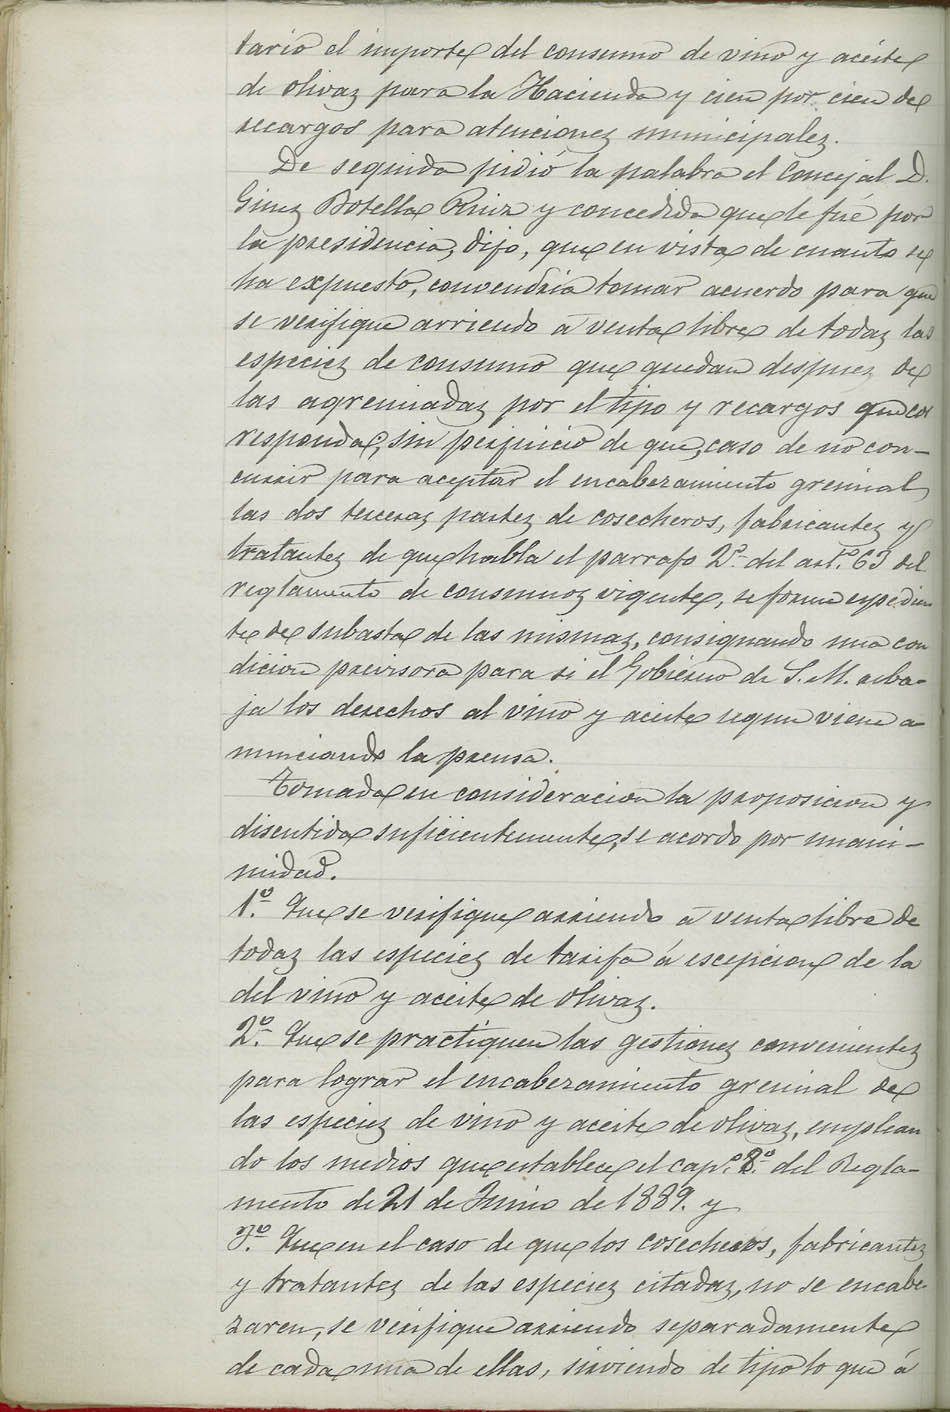 tario el importe del consumo de vino y aceite
de olivaz para la Hacienda y cien por cien de
recargos para atencionez municipalez.
De seguida pidió la palabra el Concejal D.
Ginez Botella Ruiz y concedida que le fué por
la presidencia, dijo, que en vista de cuanto se
ha expuesto, convendria tomar acuerdo para que
se verifique arriendo á venta libre de todaz las
especiez de consumo que quedan despuez de
las agremiadaz por el tipo y recargos que cor
responda, sin perjuicio de que, caso de no con-
currir para aceptar el encabezamiento gremial
las dos terceraz partez de cosecheros, fabricantez y
tratantez de que habla el parrafo 2º del artº 63 del
reglamento de consumoz vigente, se forme expedien
te de subasta de las mismaz, consignando una con
dicion previsora para si el Gobierno de S. M. reba-
ja los derechos al vino y aceite segun viene a-
nunciando la prensa.
Tomada en consideracion la proposicion y
discutida suficientemente, se acordo por unani-
midad.
1º. Que se verifique arriendo á venta libre de
todaz las especiez de tarifa á escepcion de la
del vino y aceite de olivaz.
2º. Que se practiquen las gestionez convenientez
para lograr el encabezamiento gremial de
las especiez de vino y aceite de olivaz, emplean
do los medios que establece el capº. 8º. del Regla-
mento de 21 de Junio de 1889. y
3º. Que en el caso de que los cosecheros, fabricantez
y tratantez de las especiez citadaz, no se encabe-
zaren, se verifique arriendo separadamente
de cada una de ellas, sirviendo de tipo lo que á